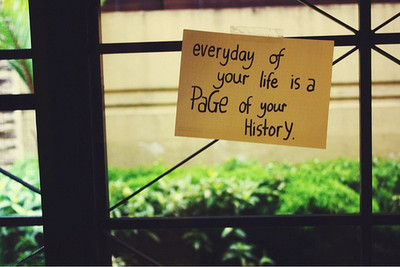 everyday of
your life is a
PaGe of your
HistorY.